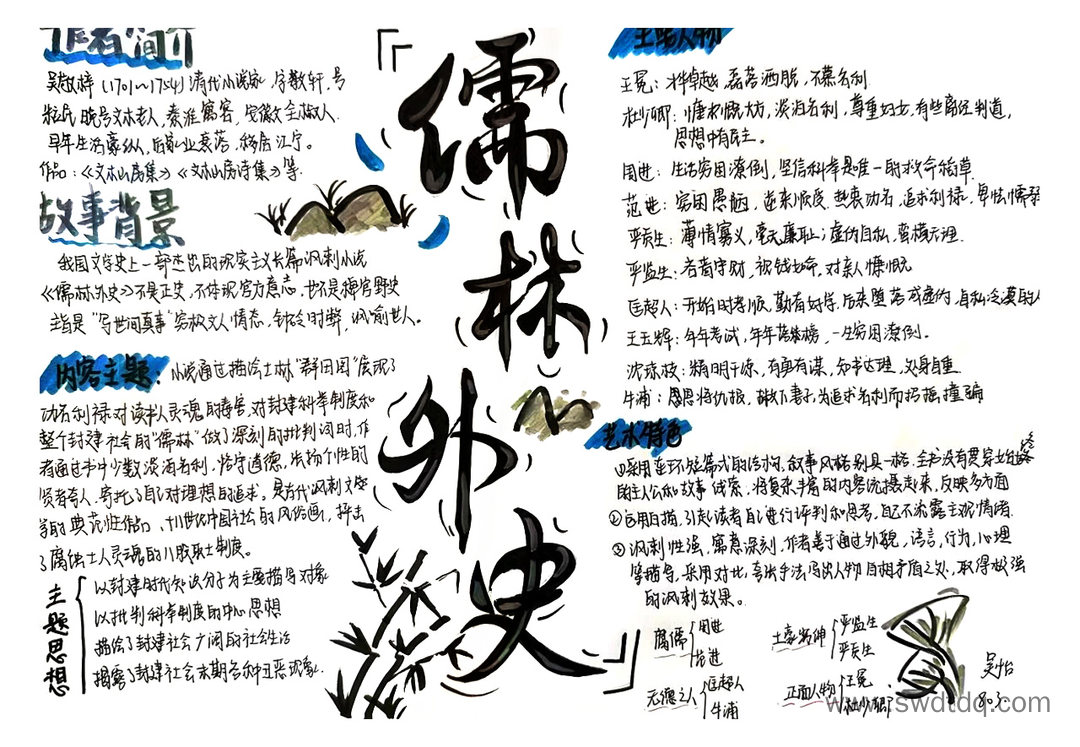 作者简介
吴敬梓(1701~1754)清代小说家,字敏轩,号
粒民,晚号文木老人,秦淮寓客,安徽全椒人.
早年生活豪纵,后家业衰落,移居江宁。
作品:《文木山房集》《文木山房诗集》等.
故事背景
我国文学史上一部杰出的现实主义长篇讽刺小说
《儒林外史》不是正史,不体现官方意志,也不是稗官野史
主旨是“写世间真事”穷极文人情态,针砭时弊,讽喻世人。
内容主题:小说通过描绘士林“群丑图”展现了
功名利禄对读书人灵魂的毒害,对封建科举制度和
整个封建社会的“儒林”做了深刻的批判同时,作
者通过书中少数淡泊名利,恪守道德,张扬个性的
贤者奇人,寄托了自己对理想的追求。是古代讽刺文学
的典范性作品、十八世纪中国社会的风俗画,抨击
了腐蚀士人灵魂的八股取士制度。
主题思想
以封建时代知识分子为主要描写对象
以批判科举制度的中心思想
描绘了封建社会广阔的社会生活
揭露了封建社会末期各种丑恶现象.
『儒林外史』
主要人物
王冕:才华卓越,磊落洒脱,不慕名利
杜少卿:慷慨大方,淡泊名利,尊重妇女,有些离经判道,
思想中有民主。
周进:生活穷困潦倒,坚信科举是唯一的救命稻草.
范进:穷困愚腐,逆来顺受,热衷功名,追求利禄,卑怯懦弱
严贡生:薄情寡义,毫无廉耻心;虚伪自私,蛮横无理.
严监生:吝啬守财,视钱如命,对亲人慷慨
匡超人:开始时孝顺,勤奋好学,后来堕落成虚伪,自私冷漠的人
王玉辉:年年考试,年年落榜,一生穷困潦倒。
沈琼枝:精明干练,有勇有谋,知书达理,义身自重
牛浦:恩将仇报,抛下妻子,为追求名利而招摇,撞骗
艺术特色
①采用连环短篇式的结构,叙事风格别具一格,全书没有贯穿始终
的主人公和故事线索.将复杂丰富的内容统摄起来,反映多方面
②运用白描,引起读者自己进行评判和思考,自己不流露主观情绪
③讽刺性强,寓意深刻,作者善于通过外貌,语言,行为,心理
等描写,采用对比,夸张手法写出人物自相矛盾之处,取得极强
的讽刺效果。
腐儒 周进 范进
土豪劣绅 严监生 严贡生
无德之人 匡超人 牛浦
正面人物 王冕 杜少卿
吴怡
803.
www.swdtdq.com